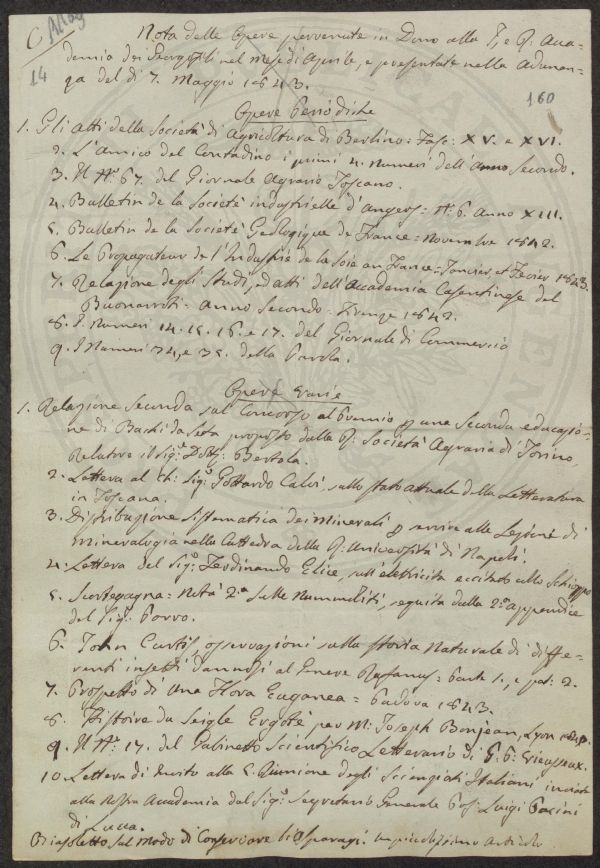 C Alleg
14
Nota delle Opere pervenute in Dono alla I. e R. Acca-
demia dei Georgofili nel mese di Aprile, e presentate nella Adunan-
za del di 7. Maggio 1843.
160
Opere Periodiche
1. Gli atti della Società di Agricoltura di Berlino: Fasc: XV. e XVI.
2. L'Amico del Contadino i primi 4. numeri dell'Anno Secondo.
3. Il N.° 67. del Giornale Agrario Toscano.
4. Bulletin de la Société industrielle d'Angers: N.° 6. Anno XIII.
5. Bulletin de la Société Geologique de France = Novembre 1842.
6. Le Propagateur de l'Industrie de la Soie en France = Janvier et Fevier 1843.
7. Relazione degli Studj, ed atti dell'Accademia Casentinese del
Buonarroti = Anno Secondo = Firenze 1842.
8. I Numeri 14. 15. 16. e 17. del Giornale di Commercio
9. I Numeri 34, e 35. della Parola.
Opere Varie
1. Relazione Seconda sul Concorso al Premio p una seconda educazio-
ne di Bachi da Seta proposto dalla R. Società Agraria di Torino,
Relatore il Sig.e Dott. Bertola.
2. Lettera al Ch: Sig. Gottardo Calvi, sullo stato attuale della Letteratura
in Toscana.
3. Distribuzione Sistematica dei Minerali p servire alle Lezioni di
Mineralogia nella Cattedra della R. Università di Napoli.
4. Lettera del Sig. Ferdinando Elice, sull'elettricita eccitata collo Schioppo
5. Scortegagna = Nota 2a sulle Nummoliti, seguita dalla 2a appendice
del Sig. Porro.
6. John Curtis, osservazioni sulla Storia Naturale di diffe-
renti insetti dannosi al Genere Rafanus = Part: 1, e par: 2.
7. Prospetto di Una Flora Euganea = Padova 1843.
8. Histoire du Seigle Ergoté par Mr. Joseph Bonjean, Lyon
9. Il N.° 17. del Gabinetto Scientifico Letterario di G. P. Vieusseux.
10. Lettera di Invito alla 5. Riunione degli Scienziati Italiani inviata
alla Nostra Accademia dal Sig. Segretario Generale Prof: Luigi Pacini
di Lucca.
Biasoletto, Sul modo di Conservare li Asparagi. un piccolissimo articolo